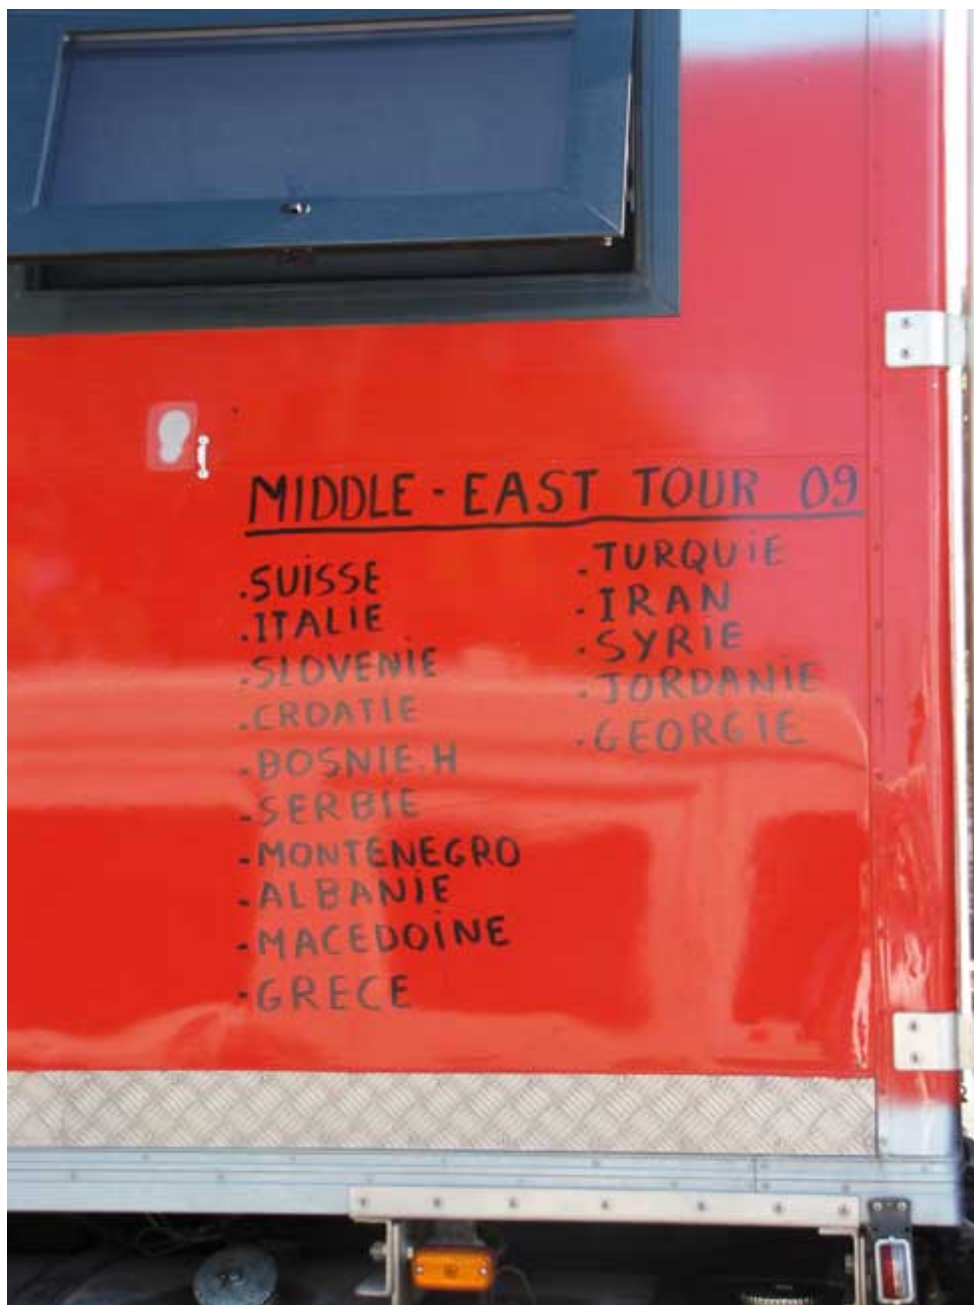 MIDDLE - EAST TOUR 09
.SUISSE
.ITALIE
.SLOVENIE
.CROATIE
-BOSNIE.H
-SERBIE
-MONTENEGRO
-ALBANIE
-MACEDOINE
-GRECE
.TURQUIE
.IRAN
.SYRIE
.JORDANIE
.GEORGIE